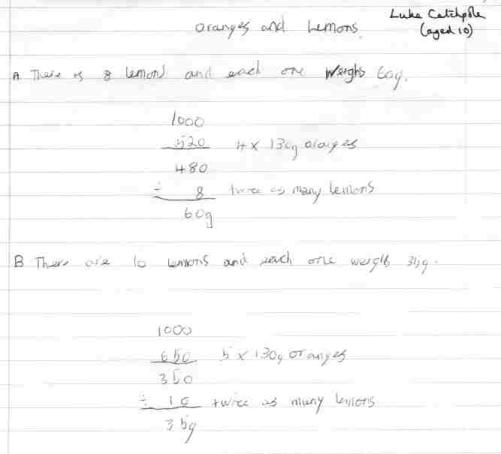 Oranges and Lemons
Luke Catchpole
(aged 10)
A There is 8 lemons and each one weighs 60g.
1000
520 4 x 130g oranges
480
÷ 8 twice as many lemons
60g
B There are 10 lemons and each one weighs 35g.
1000
650 5 x 130g oranges
350
÷ 10 twice as many lemons
35g